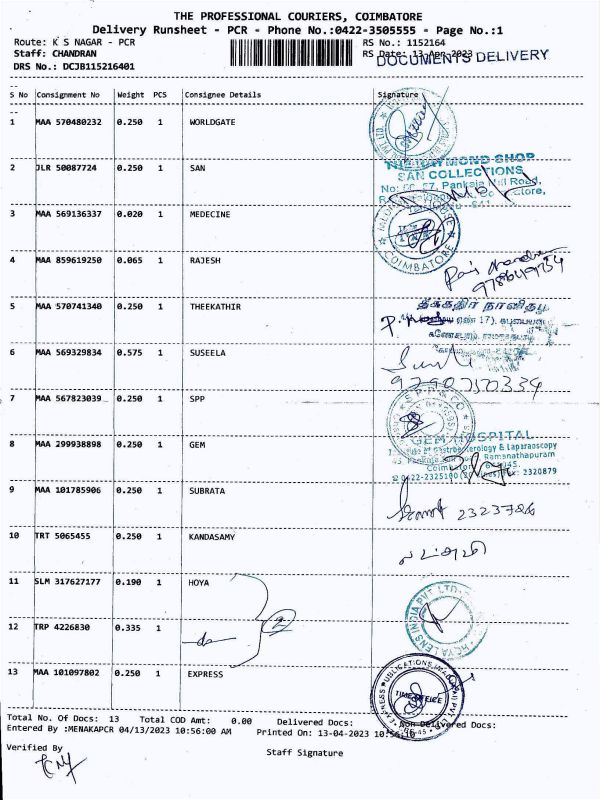 THE PROFESSIONAL COURIERS, COIMBATORE
Delivery Runsheet - PCR - Phone No.:0422-3505555 - Page No.:1
Route: K S NAGAR - PCR
RS No.: 1152164
Staff: CHANDRAN
RS Date: 13-Apr-2023
DOCUMENTS DELIVERY
DRS No.: DCJB115216401
S No Consignment No Weight PCS Consignee Details Signature
1 MAA 570480232 0.250 1 WORLDGATE
2 JLR 50087724 0.250 1 SAN
THE RAYMOND SHOP
SAN COLLECTIONS
Pankaja Mill Road,
3 MAA 569136337 0.020 1 MEDECINE
COIMBATORE
4 MAA 859619250 0.065 1 RAJESH
5 MAA 570741340 0.250 1 THEEKATHIR
தீக்கதிர் நாளிதழ்
6 MAA 569329834 0.575 1 SUSEELA
9790750334
7 MAA 567823039 0.250 1 SPP
8 MAA 299938898 0.250 1 GEM
GEM HOSPITAL
Gastroenterology & Laparoscopy
Ramanathapuram
9 MAA 101785906 0.250 1 SUBRATA
2323726
10 TRT 5065455 0.250 1 KANDASAMY
11 SLM 317627177 0.190 1 HOYA
HOYA LENS INDIA PVT LTD
12 TRP 4226830 0.335 1 do
2
13 MAA 101097802 0.250 1 EXPRESS
TIME OFFICE
Total No. Of Docs: 13 Total COD Amt: 0.00 Delivered Docs: Non Delivered Docs:
Entered By :MENAKAPCR 04/13/2023 10:56:00 AM Printed On: 13-04-2023 10:56:10
Verified By
Staff Signature